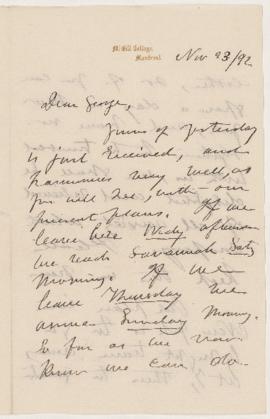 McGill College,
Montreal.
Nov 23/92
Dear George,
Yours of yesterday
is just received, and
harmonises very well, as
you will see, with our
present plans. If we
leave here Wedy afternoon
we reach Savannah Saty
morning. If we
leave Thursday we
arrive Sunday morng.
So far as we now
know we can do